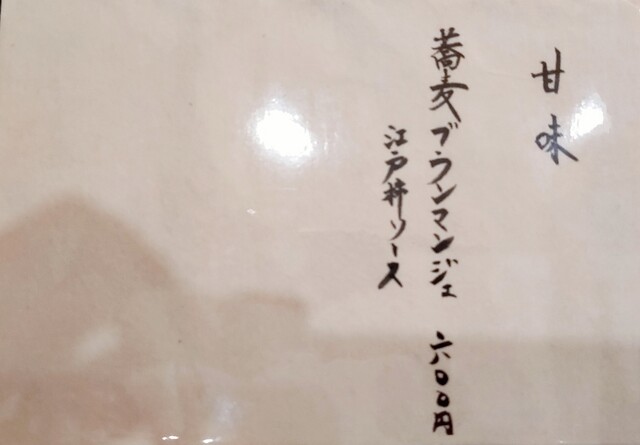 甘味
蕎麦ブランマンジェ 六〇〇円
江戸柿ソース